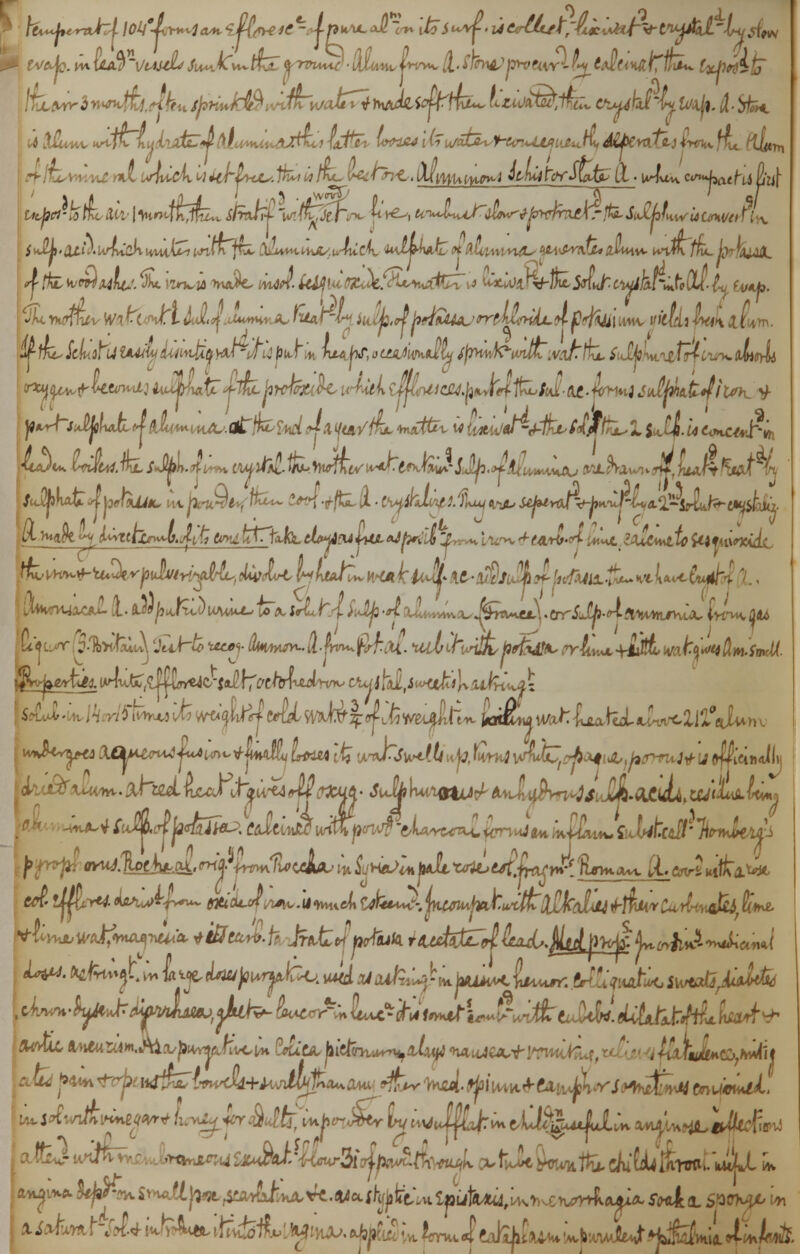 temperat. of 104° forms an effloresc<sup>e</sup> of pure al<sup>m</sup> on its surf. is collect<sup>d</sup>, lixiviat<sup>d</sup> & crystal<sup>d</sup> by slow
evap. in leaden vessels sunk in the ground. Alum from A. Stone procur<sup>d</sup> by calcinat<sup>n</sup>, then expos<sup>d</sup> to
the air 3 months, often sprinkled with water & made soft then lixiviated, then crystal<sup>d</sup> by evap. A. Stone
is Alum with hydrate of Alumina & this latter looses its water & consequently seperates from the Alum
of the mineral which is set free. this is the best one. Aluminous Schist or Slate A. when compact is first
expos<sup>d</sup> to the air 1 month, then stratif<sup>d</sup> with wood set on fire, combust. slow & protract<sup>d</sup> the Sulphur is convert<sup>d</sup> in
sulp. acid. which unites with the alumina, which sulphate of alumina generates alum with the potassa
of the wood ashes. The iron is made insol. sesquioxide. The matter is lixiviat<sup>d</sup> & the Solut. crystal<sup>d</sup> into Al. by evap.
The mother wat. cont. sul. of alumina treat<sup>d</sup> by sulp. of potassa or chloride of potassium yields fresh alum.
If the Schist is easily disintegrat<sup>d</sup> it is put in heaps, occasionally sprink<sup>d</sup> with wat. the sulphuret of iron absorbs
oxygen & becomes sulphate of the protoxide which effloresces, part of the sul. ac. forms sulphate of iron &
part sulphate of alumina. at the end of a year the matter is lixiviat<sup>d</sup> & the sol. of the 2 sulp. is concent<sup>d</sup> in
leaden boilers. the sulph. of iron crystal. the mother wat. contain<sup>g</sup> sulp. of alumina are drawn off, heat<sup>d</sup> & treat<sup>d</sup> by
sulphate of potassa in powder, then cool & the A. crystalizes. They are seperat<sup>d</sup> & purif<sup>d</sup> by a 2<sup>nd</sup> solut. & crystaliz.
A. made by direct comb. of its constit. Take clay as free as possib. from iron & carb. of lime, calcine to sesquioxide
the iron & render pulverizable, dissolve by heat in weak sulp. ac. add sulp. of potassa. then we have crystals of A.
Ammoniacal A. add putrid urine to a solut. of sulp. of alumina (France). or sulp. of ammonia from gas
liquor (G. Britain) Test to recog. Ammon. A. from pot. al. rub it with potassa or lime & little wat. gives Am. Smell.
Properties. white, effloresc<sup>t</sup> salt, octohedron crystal, sweetish, astring<sup>t</sup>
Solub. in 14 or 15 times its weight of cold wat. & ¾ of its weight in boiling wat. heated above 212° alum
undergoes aqueous fusion & finally looses its wat. swells up, turns white, opaque, porous & is officinally
dried alum. at red heat it gives off oxyg. sulphurous & anhydrous sulp. acids, residue being
alumina & sulp. of potassa. calcined with powd<sup>d</sup> charcoal forms an inflam. subst. call<sup>d</sup> Homberg's
pyrophorus. Roche al. orig<sup>y</sup> from Roccha in Syria in pale rose col. fragm<sup>ts</sup>. Roman A. cov<sup>d</sup> with a rose
col. efflores. deriv<sup>d</sup> from oxide of iron. is much esteem<sup>d</sup>. Incompat. with Alkalies & their Carbonates, lime
& lime wat., magnesia & its carb. tartrate of potassa & acetate of lead. Med. prop. In ordin<sup>y</sup> medicinal
doses. astring<sup>t</sup>. in large doses purgative. used as astring<sup>t</sup> in passive hemor. colliquative sweats, diabetes
, chron. dysent. diarrhoea, gleet & leucor. in leuc<sup>a</sup> it is somet<sup>s</sup> comb<sup>d</sup> with cubebs. dilatat. of the heart &
aortic aneurism. As a purgative in Colica pictonum, alays nausea & vomiting, relieves flatulence, mitig
ates pain & opens the bowels & surely than any other med. opium & camphor sometimes conjoined.
in sol. with vinegar & honey for adults, in powder by insufflat. in children useful in anginose affections
attend<sup>d</sup> with membraneous exudat<sup>n</sup>. blow ʒi of powd. through a tube down the child's throat. useful in
angina depend. on small pox, scarlatina &c. as a styptic in epistaxis, in menorrhagia soak a sponge in
a saturat<sup>d</sup> sol. & introduce it into the vagina. applied in form of cataplasm in purulent ophthalmia of infants.